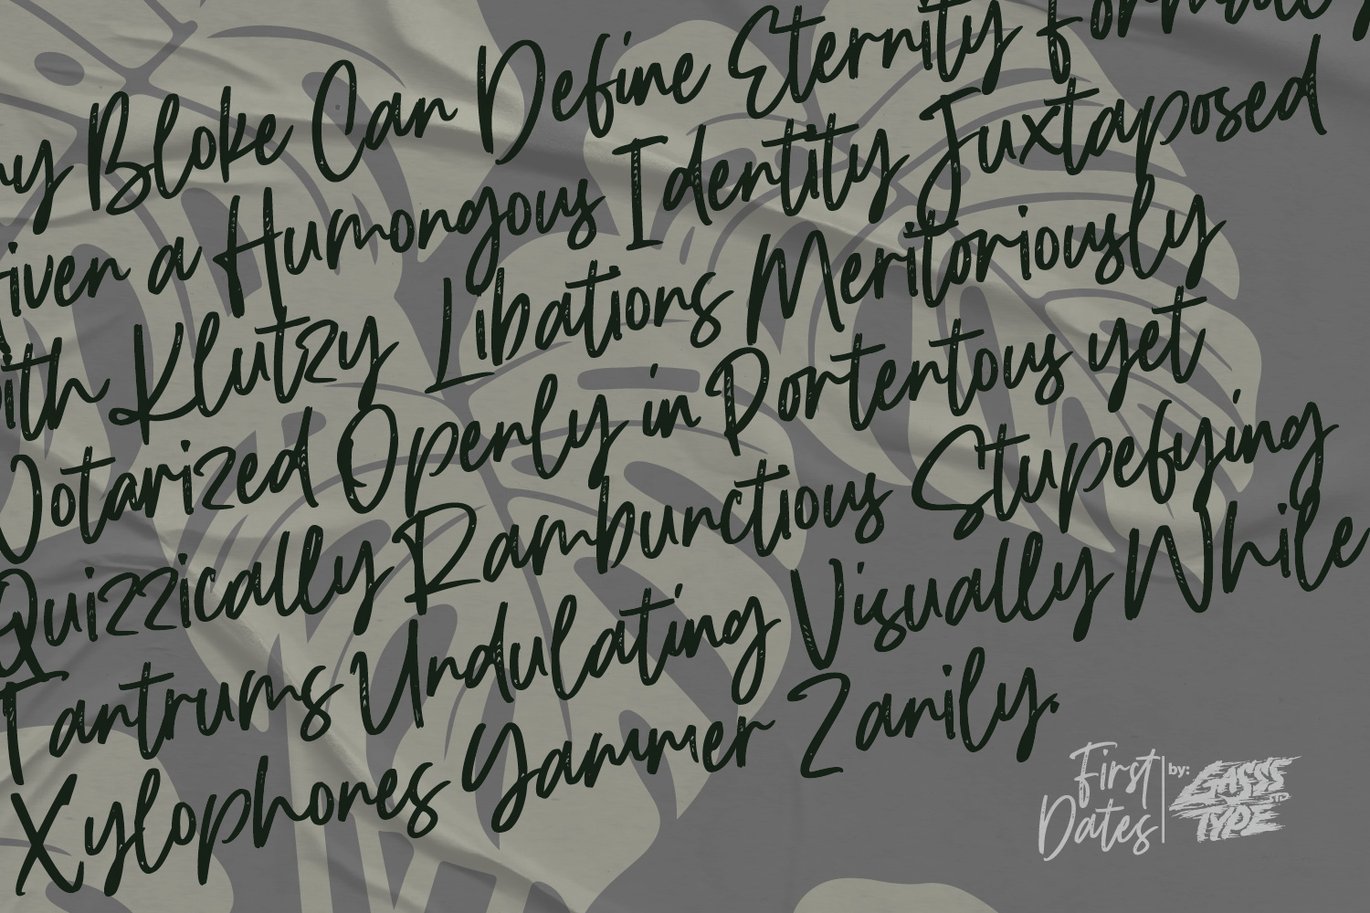 ny Bloke Can Define Eternity Formally
Given a Humongous Identity Juxtaposed
ith Klutzy Libations Meritoriously
Notarized Openly in Portentous yet
Quizzically Rambunctious Stupefying
Tantrums Undulating Visually While
Xylophones Yammer Zanily.
First
Dates
by:
GASSS
TYPE